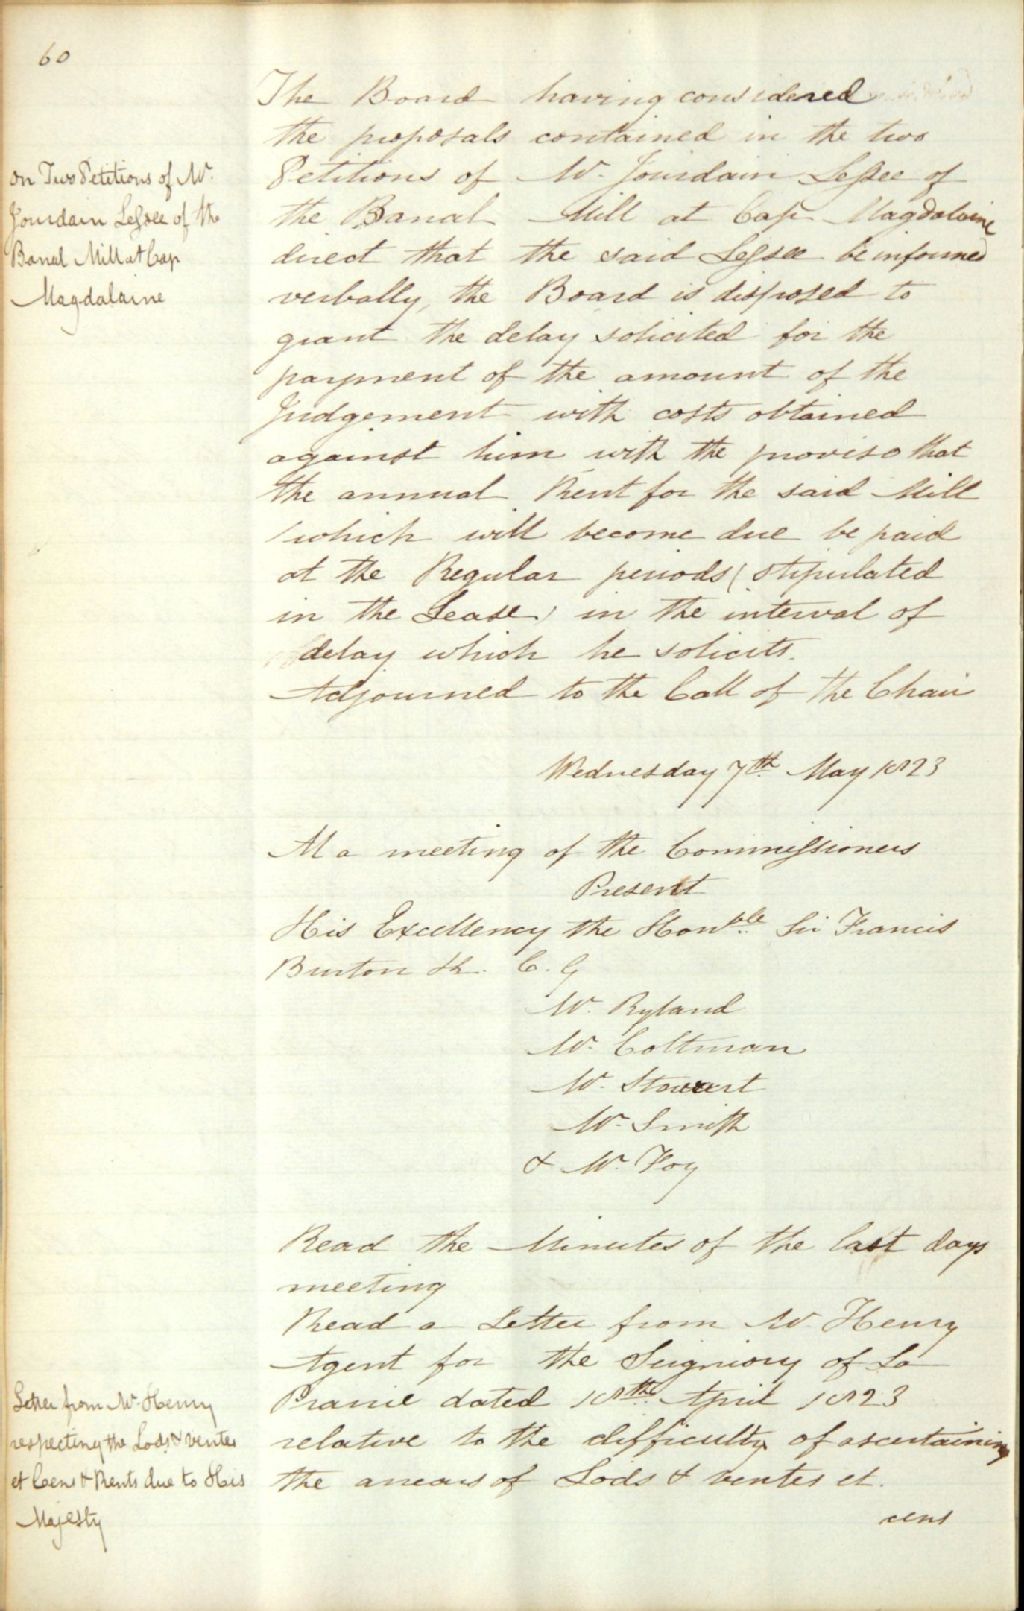 60
The Board having considered
the proposals contained in the two
on Two Petitions of Mr.
Jourdain Lessee of the
Banal Mill at Cap
Magdalaine
Petitions of Mr. Jourdain Lessee of
the Banal Mill at Cap Magdalaine
direct that the said Lessee be informed
verbally, the Board is disposed to
grant the delay solicited for the
payment of the amount of the
Judgement with costs obtained
against him with the proviso that
the annual Rent for the said Mill
(which will become due be paid
at the Regular periods (stipulated
in the Lease) in the interval of
delay which he solicits.
Adjourned to the Call of the Chair
Wednesday 7th May 1823
At a meeting of the Commissioners
Present
His Excellency the Honble Sir Francis
Burton K. C. G
Mr. Ryland
Mr. Coltman
Mr. Stewart
Mr. Smith
& Mr. Foy
Read the Minutes of the last days
meeting
Read a Letter from Mr. Henry
Agent for the Seigniory of La
Letter from Mr. Henry
respecting the Lods & ventes
et Cens & Rents due to His
Majesty
Prarie dated 18th April 1823
relative to the difficulty of ascertaining
the arrears of Lods & ventes et.
cens